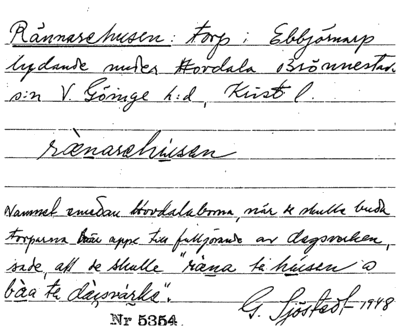 Rännarehusen: torp i Ebbjörnarp
lydande under Hovdala Brönnestad
s:n V. Göinge h:d, Krist l.
rænarehusen
Namnet emedan Hovdalaborna, när de skulle buda
torparna där uppe till fullgörande av dagsverken,
sade, att de skulle "räna te husen o
båa te dagsvärke".
G. Sjöstedt 1948
Nr 5354.